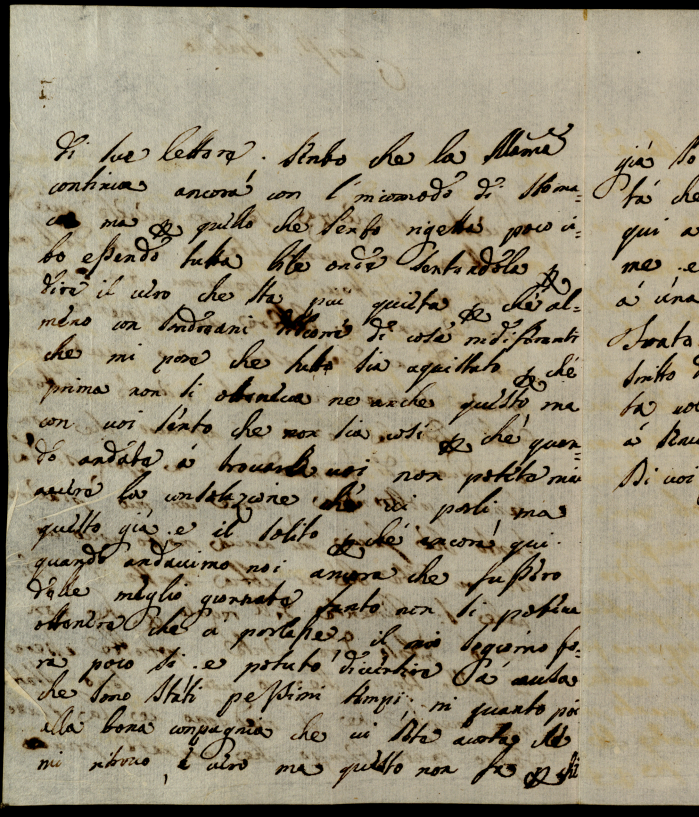 di sue lettere. sento che la Mamà
continua ancorà con l'incomodo di stoma=
co mà quello che sento rigetta poco ci=
bo essendo tutta bile onde sentendola
dire il vero che sta più quieta che al=
meno con discorre di cose indiferenti
che mi pare che tutto sia aquistato ché
prima non si oteneva ne anche questo ma
con voi sento che non sia cosi ché quan=
do andate à trovarla voi non potete mai
avere la consolazione che vi parli ma
questo già e il solito ché ancorà qui
quando andavimo noi ancora che fussero
delle meglio giornate tanto non si poteva
ottenere che a parlasse. il mio segiorno fo=
ra poco si e potuto divertire à causa
che sono stati pessimi tempi; in quanto poi
alla bona conpagnia che vi sete acorta che
mi ritrovo, è vero ma questo non fa
già
tà che
qui a
me e
à una
scritto
à
Di voi